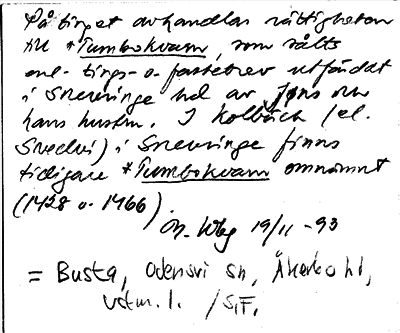 På tinget avhandlas rättigheten
till *Tumbokvarn, som sålts
enl. tings- o. fastebrev utfärdat
i Snevringe hd av Jöns och
hans hustru. I Kolbäck (el.
Svedvi) i Snevringe finns
tidigare *Tumbokvarn omnämnt
(1428 o. 1466).
19/11 -93
= Busta, Odensvi sn, Åkerbo hd,
Västm. l. /S.F.